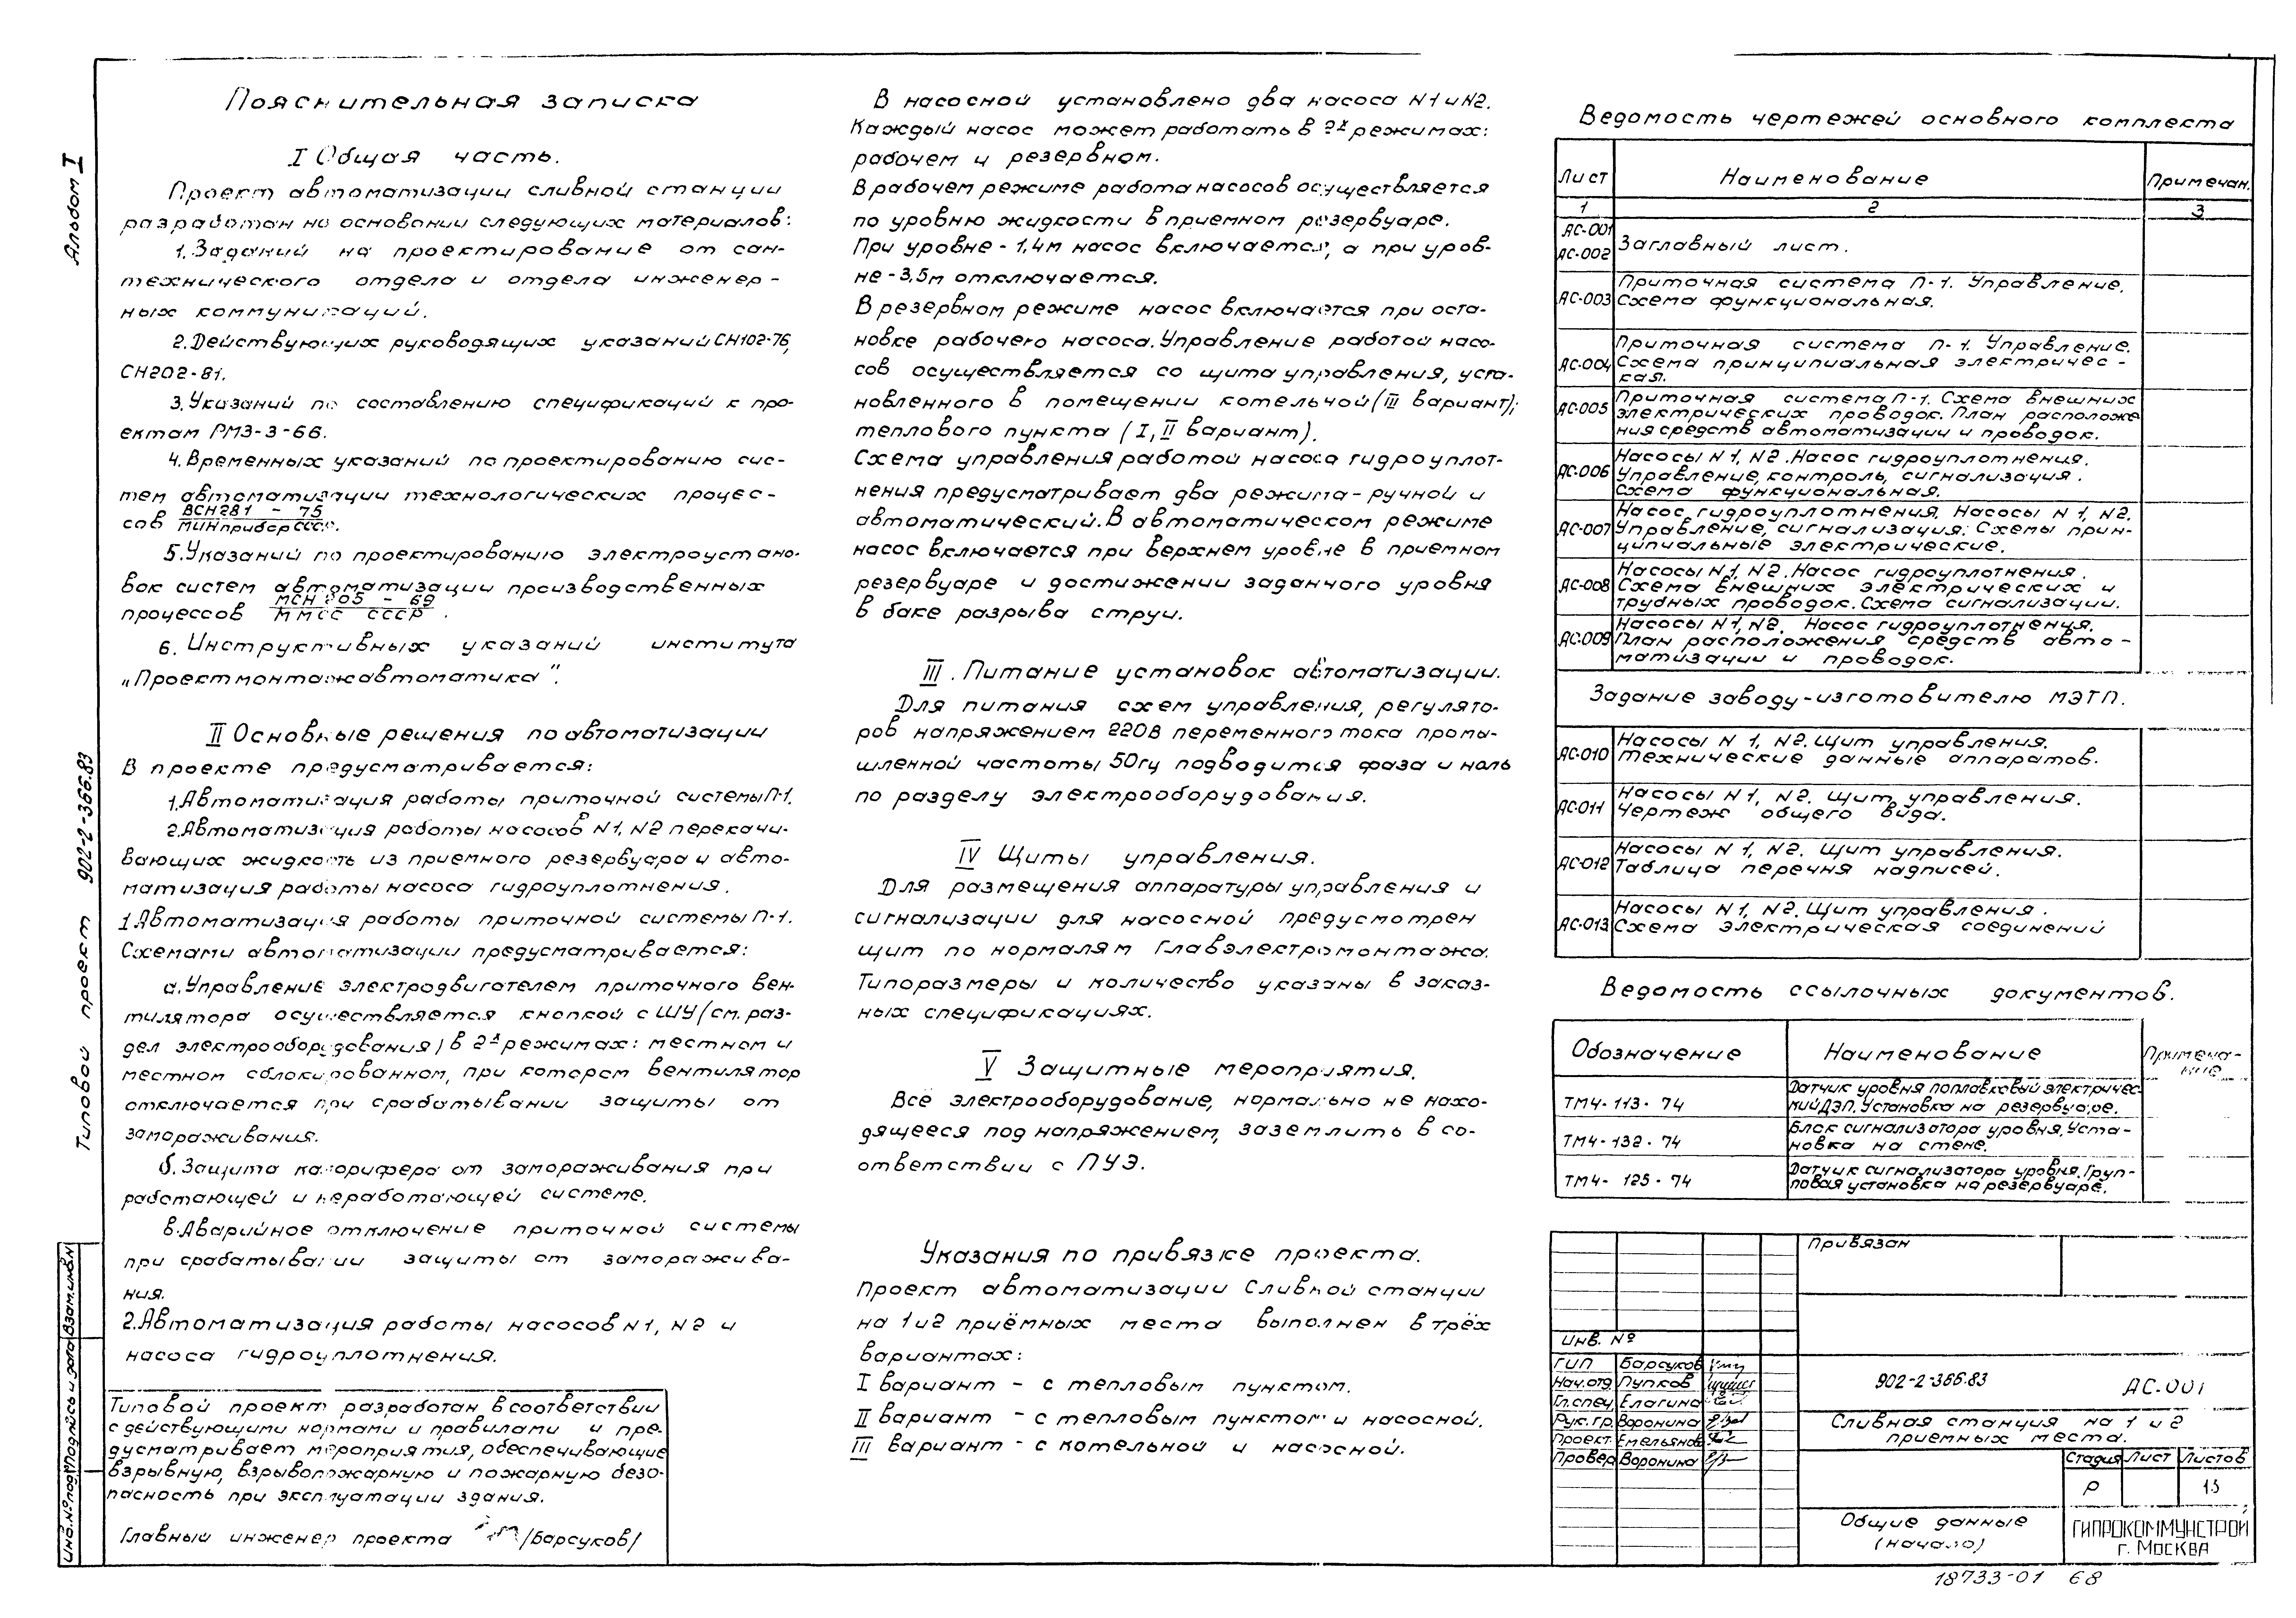 Альбом I
Типовой проект 902-2-366.83
Пояснительная записка
I Общая часть.
Проект автоматизации сливной станции
разработан на основании следующих материалов:
1. Заданий на проектирование от сан-
технического отдела и отдела инженер-
ных коммуникаций.
2. Действующих руководящих указаний СН102-76,
СН202-81.
3. Указаний по составлению спецификаций к про-
ектам РМ3-3-66.
4. Временных указаний по проектированию сис-
тем автоматизации технологических процес-
сов ВСН281 - 75
Минприбор СССР.
5. Указаний по проектированию электроустано-
вок систем автоматизации производственных
процессов МСН 205 - 69
ММСС СССР .
6. Инструктивных указаний института
„Проектмонтажавтоматика".
II Основные решения по автоматизации
В проекте предусматривается:
1. Автоматизация работы приточной системы П-1.
2. Автоматизация работы насосов N1, N2 перекачи-
вающих жидкость из приемного резервуара и авто-
матизация работы насоса гидроуплотнения.
1 Автоматизация работы приточной системы П-1.
Схемами автоматизации предусматривается:
а. Управление электродвигателем приточного вен-
тилятора осуществляется кнопкой с ШУ (см. раз-
дел электрооборудования) в 2х режимах: местном и
местном сблокированном, при котором вентилятор
отключается при срабатывании защиты от
замораживания.
б. Защита калорифера от замораживания при
работающей и неработающей системе.
в. Аварийное отключение приточной системы
при срабатывании защиты от заморажива-
ния.
2. Автоматизация работы насосов N1, N2 и
насоса гидроуплотнения.
Типовой проект разработан в соответствии
с действующими нормами и правилами и пре-
дусматривает мероприятия, обеспечивающие
взрывную, взрывопожарную и пожарную безо-
пасность при эксплуатации здания.
Главный инженер проекта /Барсуков/
Инв.№ подл. Подпись и дата Взам.инв.N
В насосной установлено два насоса N1 и N2.
Каждый насос может работать в 2х режимах:
рабочем и резервном.
В рабочем режиме работа насосов осуществляется
по уровню жидкости в приемном резервуаре.
При уровне - 1,4м насос включается, а при уров-
не - 3,5м отключается.
В резервном режиме насос включается при оста-
новке рабочего насоса. Управление работой насо-
сов осуществляется со щита управления, уста-
новленного в помещении котельной (III вариант);
теплового пункта (I, II вариант).
Схема управления работой насоса гидроуплот-
нения предусматривает два режима - ручной и
автоматический. В автоматическом режиме
насос включается при верхнем уровне в приемном
резервуаре и достижении заданного уровня
в баке разрыва струи.
III. Питание установок автоматизации.
Для питания схем управления, регулято-
ров напряжением 220В переменного тока промы-
шленной частоты 50гц подводится фаза и ноль
по разделу электрооборудования.
IV Щиты управления.
Для размещения аппаратуры управления и
сигнализации для насосной предусмотрен
щит по нормалям Главэлектромонтажа.
Типоразмеры и количество указаны в заказ-
ных спецификациях.
V Защитные мероприятия.
Всё электрооборудование, нормально не нахо-
дящееся под напряжением, заземлить в со-
ответствии с ПУЭ.
Указания по привязке проекта.
Проект автоматизации Сливной станции
на 1 и 2 приёмных места выполнен в трёх
вариантах:
I вариант - с тепловым пунктом.
II вариант - с тепловым пунктом и насосной.
III вариант - с котельной и насосной.
Ведомость чертежей основного комплекта
Лист Наименование Примечан.
1 2 3
АС-001
АС-002 Заглавный лист.
Приточная система П-1. Управление.
АС-003 Схема функциональная.
Приточная система П-1. Управление.
АС-004 Схема принципиальная электричес-
кая.
Приточная система П-1. Схема внешних
АС-005 электрических проводок. План расположе
ния средств автоматизации и проводок.
Насосы N1, N2. Насос гидроуплотнения.
АС-006 Управление, контроль, сигнализация.
Схема функциональная.
Насос гидроуплотнения, Насосы N1, N2.
АС-007 Управление, сигнализация. Схемы прин-
ципиальные электрические.
Насосы N1, N2. Насос гидроуплотнения.
АС-008 Схема внешних электрических и
трубных проводок. Схема сигнализации.
Насосы N1, N2. Насос гидроуплотнения.
АС-009 План расположения средств авто-
матизации и проводок.
Задание заводу-изготовителю МЭТП.
Насосы N 1, N2. Щит управления.
АС-010 Технические данные аппаратов.
Насосы N 1, N2. Щит управления.
АС-011 Чертеж общего вида.
Насосы N 1, N2. Щит управления.
АС-012 Таблица перечня надписей.
Насосы N 1, N2. Щит управления.
АС-013 Схема электрическая соединений
Ведомость ссылочных документов.
Обозначение Наименование Примеча-
ние
Датчик уровня поплавковый электричес-
ТМ4-113-74 кий ДЭП. Установка на резервуаре.
Блок сигнализатора уровня. Уста-
ТМ4-132-74 новка на стене.
Датчик сигнализатора уровня. Груп-
ТМ4-125-74 повая установка на резервуаре.
Привязан
Инв. №
ГИП Барсуков
Нач.отд. Пупков
Гл.спец. Елагина
Рук.гр. Воронина
Проект. Емельянов
Провер. Воронина
902-2-366.83 АС.001
Сливная станция на 1 и 2
приемных места.
Стадия Лист Листов
Р 13
Общие данные
(начало)
ГИПРОКОММУНСТРОЙ
г. Москва
18733-01 68